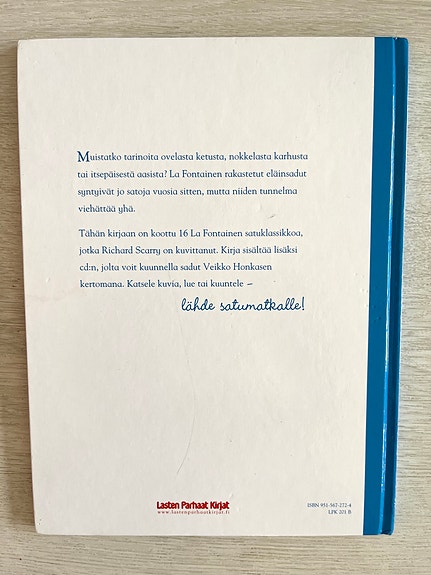 Muistatko tarinoita ovelasta ketusta, nokkelasta karhusta
tai itsepäisestä aasista? La Fontainen rakastetut eläinsadut
syntyivät jo satoja vuosia sitten, mutta niiden tunnelma
viehättää yhä.
Tähän kirjaan on koottu 16 La Fontainen satuklassikkoa,
jotka Richard Scarry on kuvittanut. Kirja sisältää lisäksi
cd:n, jolta voit kuunnella sadut Veikko Honkasen
kertomana. Katsele kuvia, lue tai kuuntele –
lähde satumatkalle!
Lasten Parhaat Kirjat
www.lastenparhaatkirjat.fi
ISBN 951-567-272-4
LPK 201 B